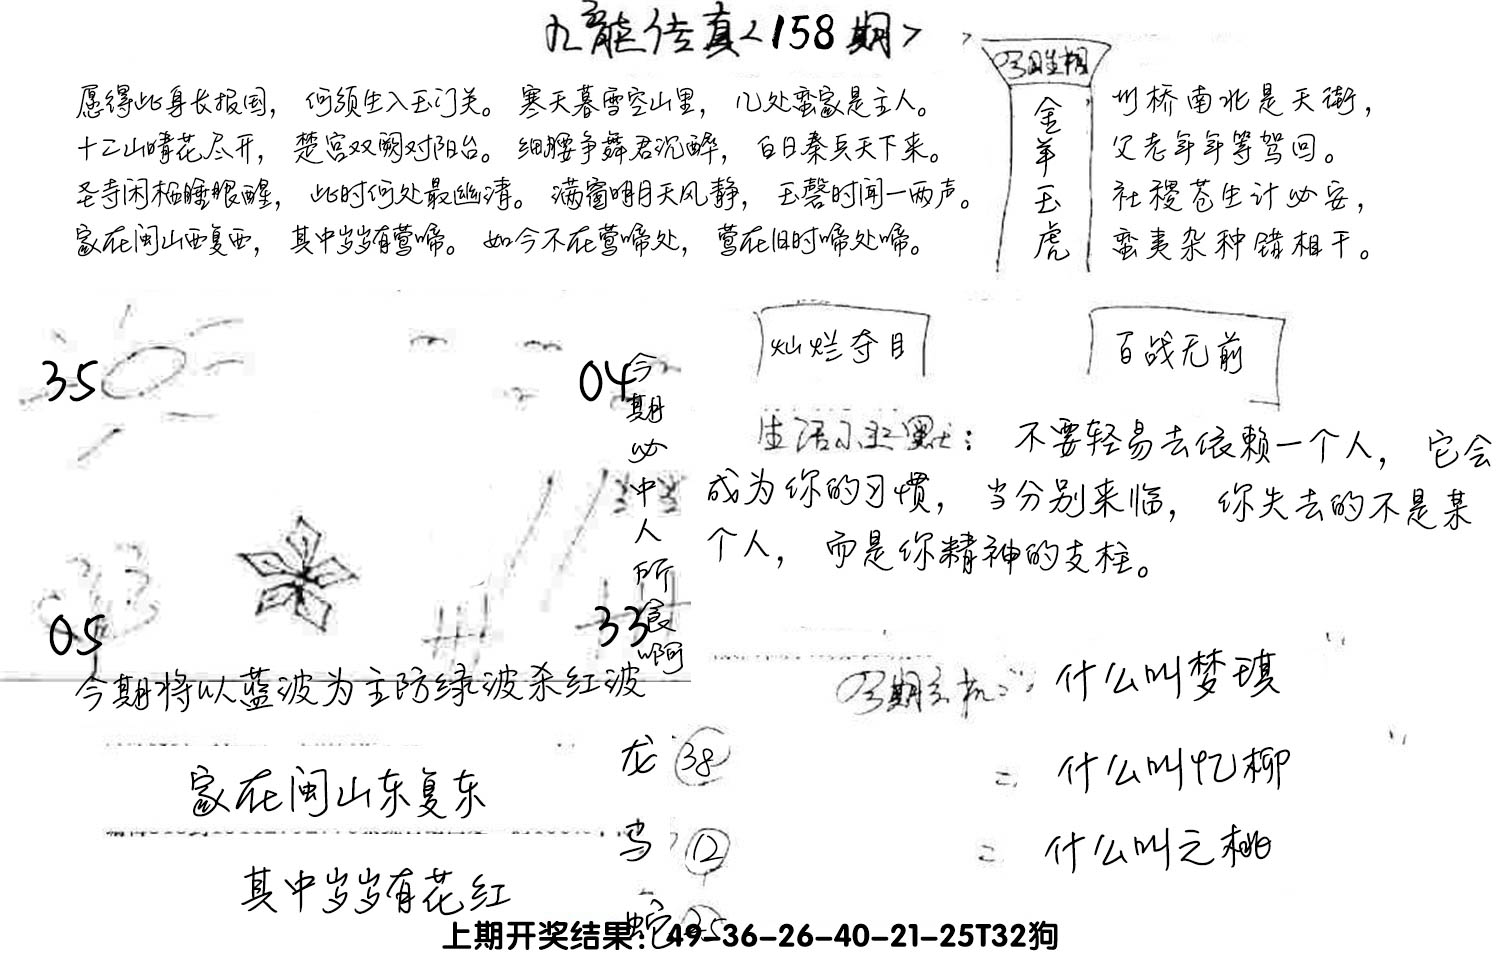 九龙传真<158期>
愿得此身长报国，何须生入玉门关。寒天暮雪空山里，几处蛮家是主人。
十二山晴花尽开，楚宫双阙对阳台。细腰争舞君沉醉，白日秦兵天下来。
圣寺闲栖睡眼醒，此时何处最幽清。满窗明月天风静，玉磬时闻一两声。
家在闽山西复西，其中岁岁有莺啼。如今不在莺啼处，莺在旧时啼处啼。
金羊玉虎
州桥南北是天街，
父老年年等驾回。
社稷苍生计必安，
蛮夷杂种错相干。
35
04
05
33
今期必中人所食啊
今期将以蓝波为主防绿波杀红波
灿烂夺目
百战无前
生活小幽默：不要轻易去依赖一个人，它会
成为你的习惯，当分别来临，你失去的不是某
个人，而是你精神的支柱。
家在闽山东复东
其中岁岁有花红
龙 38
鸟 12
蛇 35
什么叫梦琪
二 什么叫忆柳
二 什么叫之桃
上期开奖结果：49-36-26-40-21-25T32狗